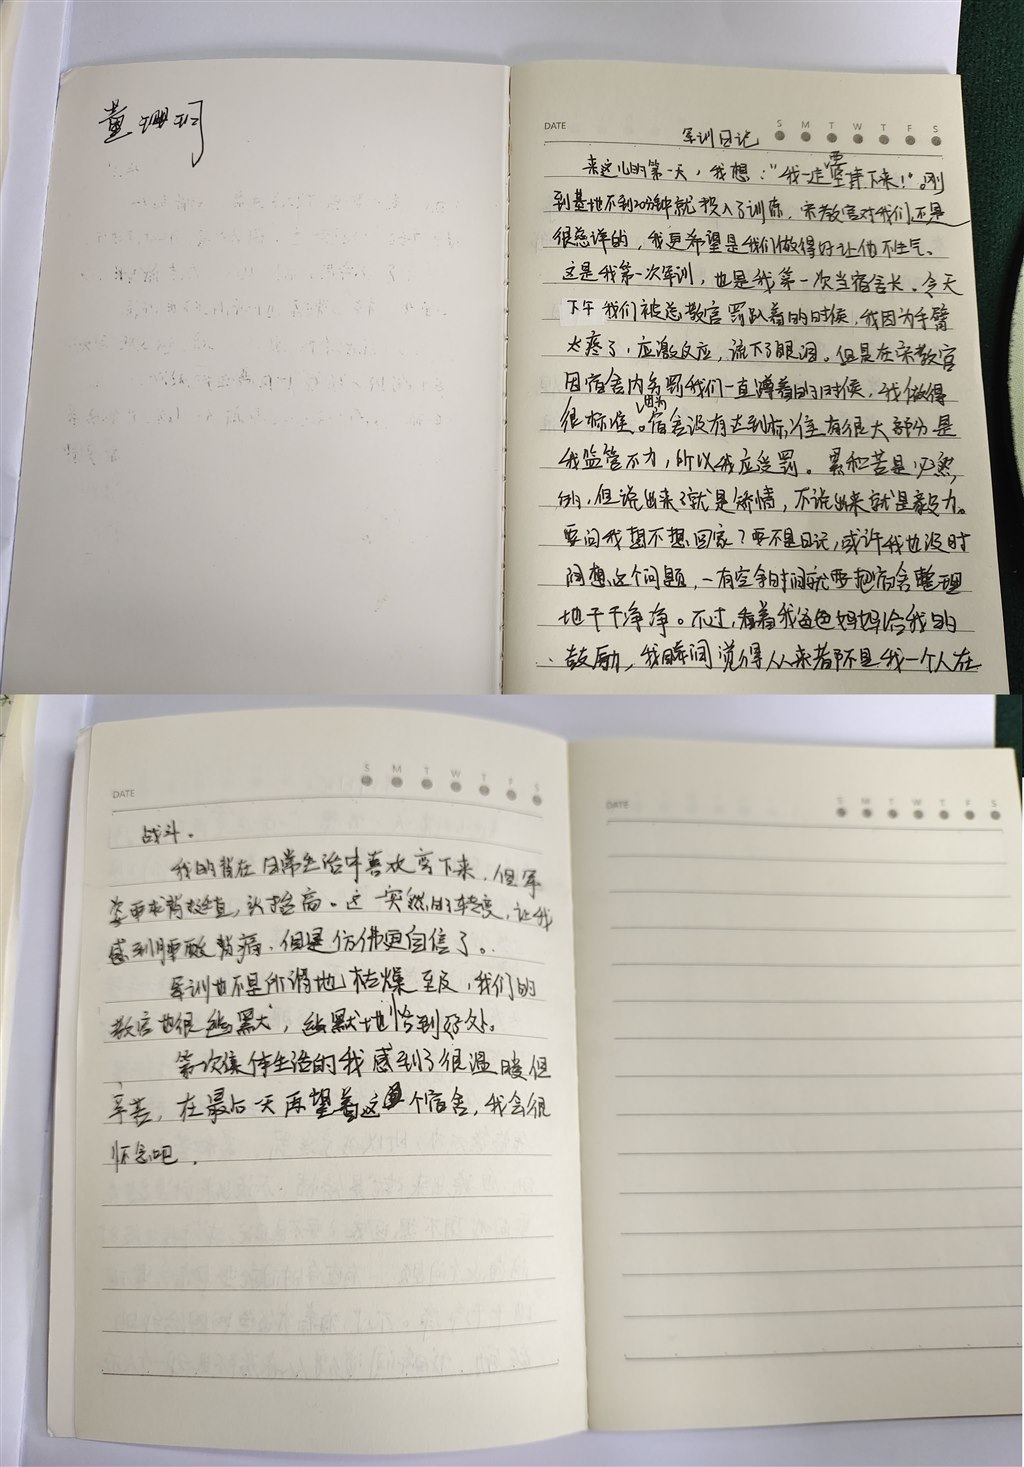 黄
DATE
S M T W T F S
军训日记
来这儿的第一天，我想："我一定要坚持下来！"。刚
到基地不到20分钟就投入了训练，宋教官对我们还是
很慈祥的，我更希望是我们做得好让他不生气。
这是我第一次军训，也是我第一次当宿舍长。今天
下午我们被总教官罚趴着的时候，我因为手臂
太疼了，应激反应，流下了眼泪。但是在宋教官
因宿舍内务罚我们一直蹲着的时候，我做得
很标准。因为宿舍没有达到标准有很大部分是
我监管不力，所以我应受罚。累和苦是必然
的，但说出来了就是矫情，不说出来就是毅力。
要问我想不想回家？要不是日记，或许我也没时
间想这个问题，一有空余时间就要把宿舍整理
地干干净净。不过，看着我爸爸妈妈给我的
鼓励，我瞬间觉得从来都不是我一个人在
DATE
S M T W T F S
战斗。
我的背在日常生活中喜欢弯下来，但军
姿要求背挺直，头抬高。这一突然的转变，让我
感到腰酸背痛，但是仿佛更自信了。
军训也不是所谓地枯燥至及，我们的
教官也很幽默，幽默地恰到好处。
第一次集体生活的我感到了很温暖但
辛苦，在最后一天再望着这个宿舍，我会很
怀念吧。
DATE
S M T W T F S